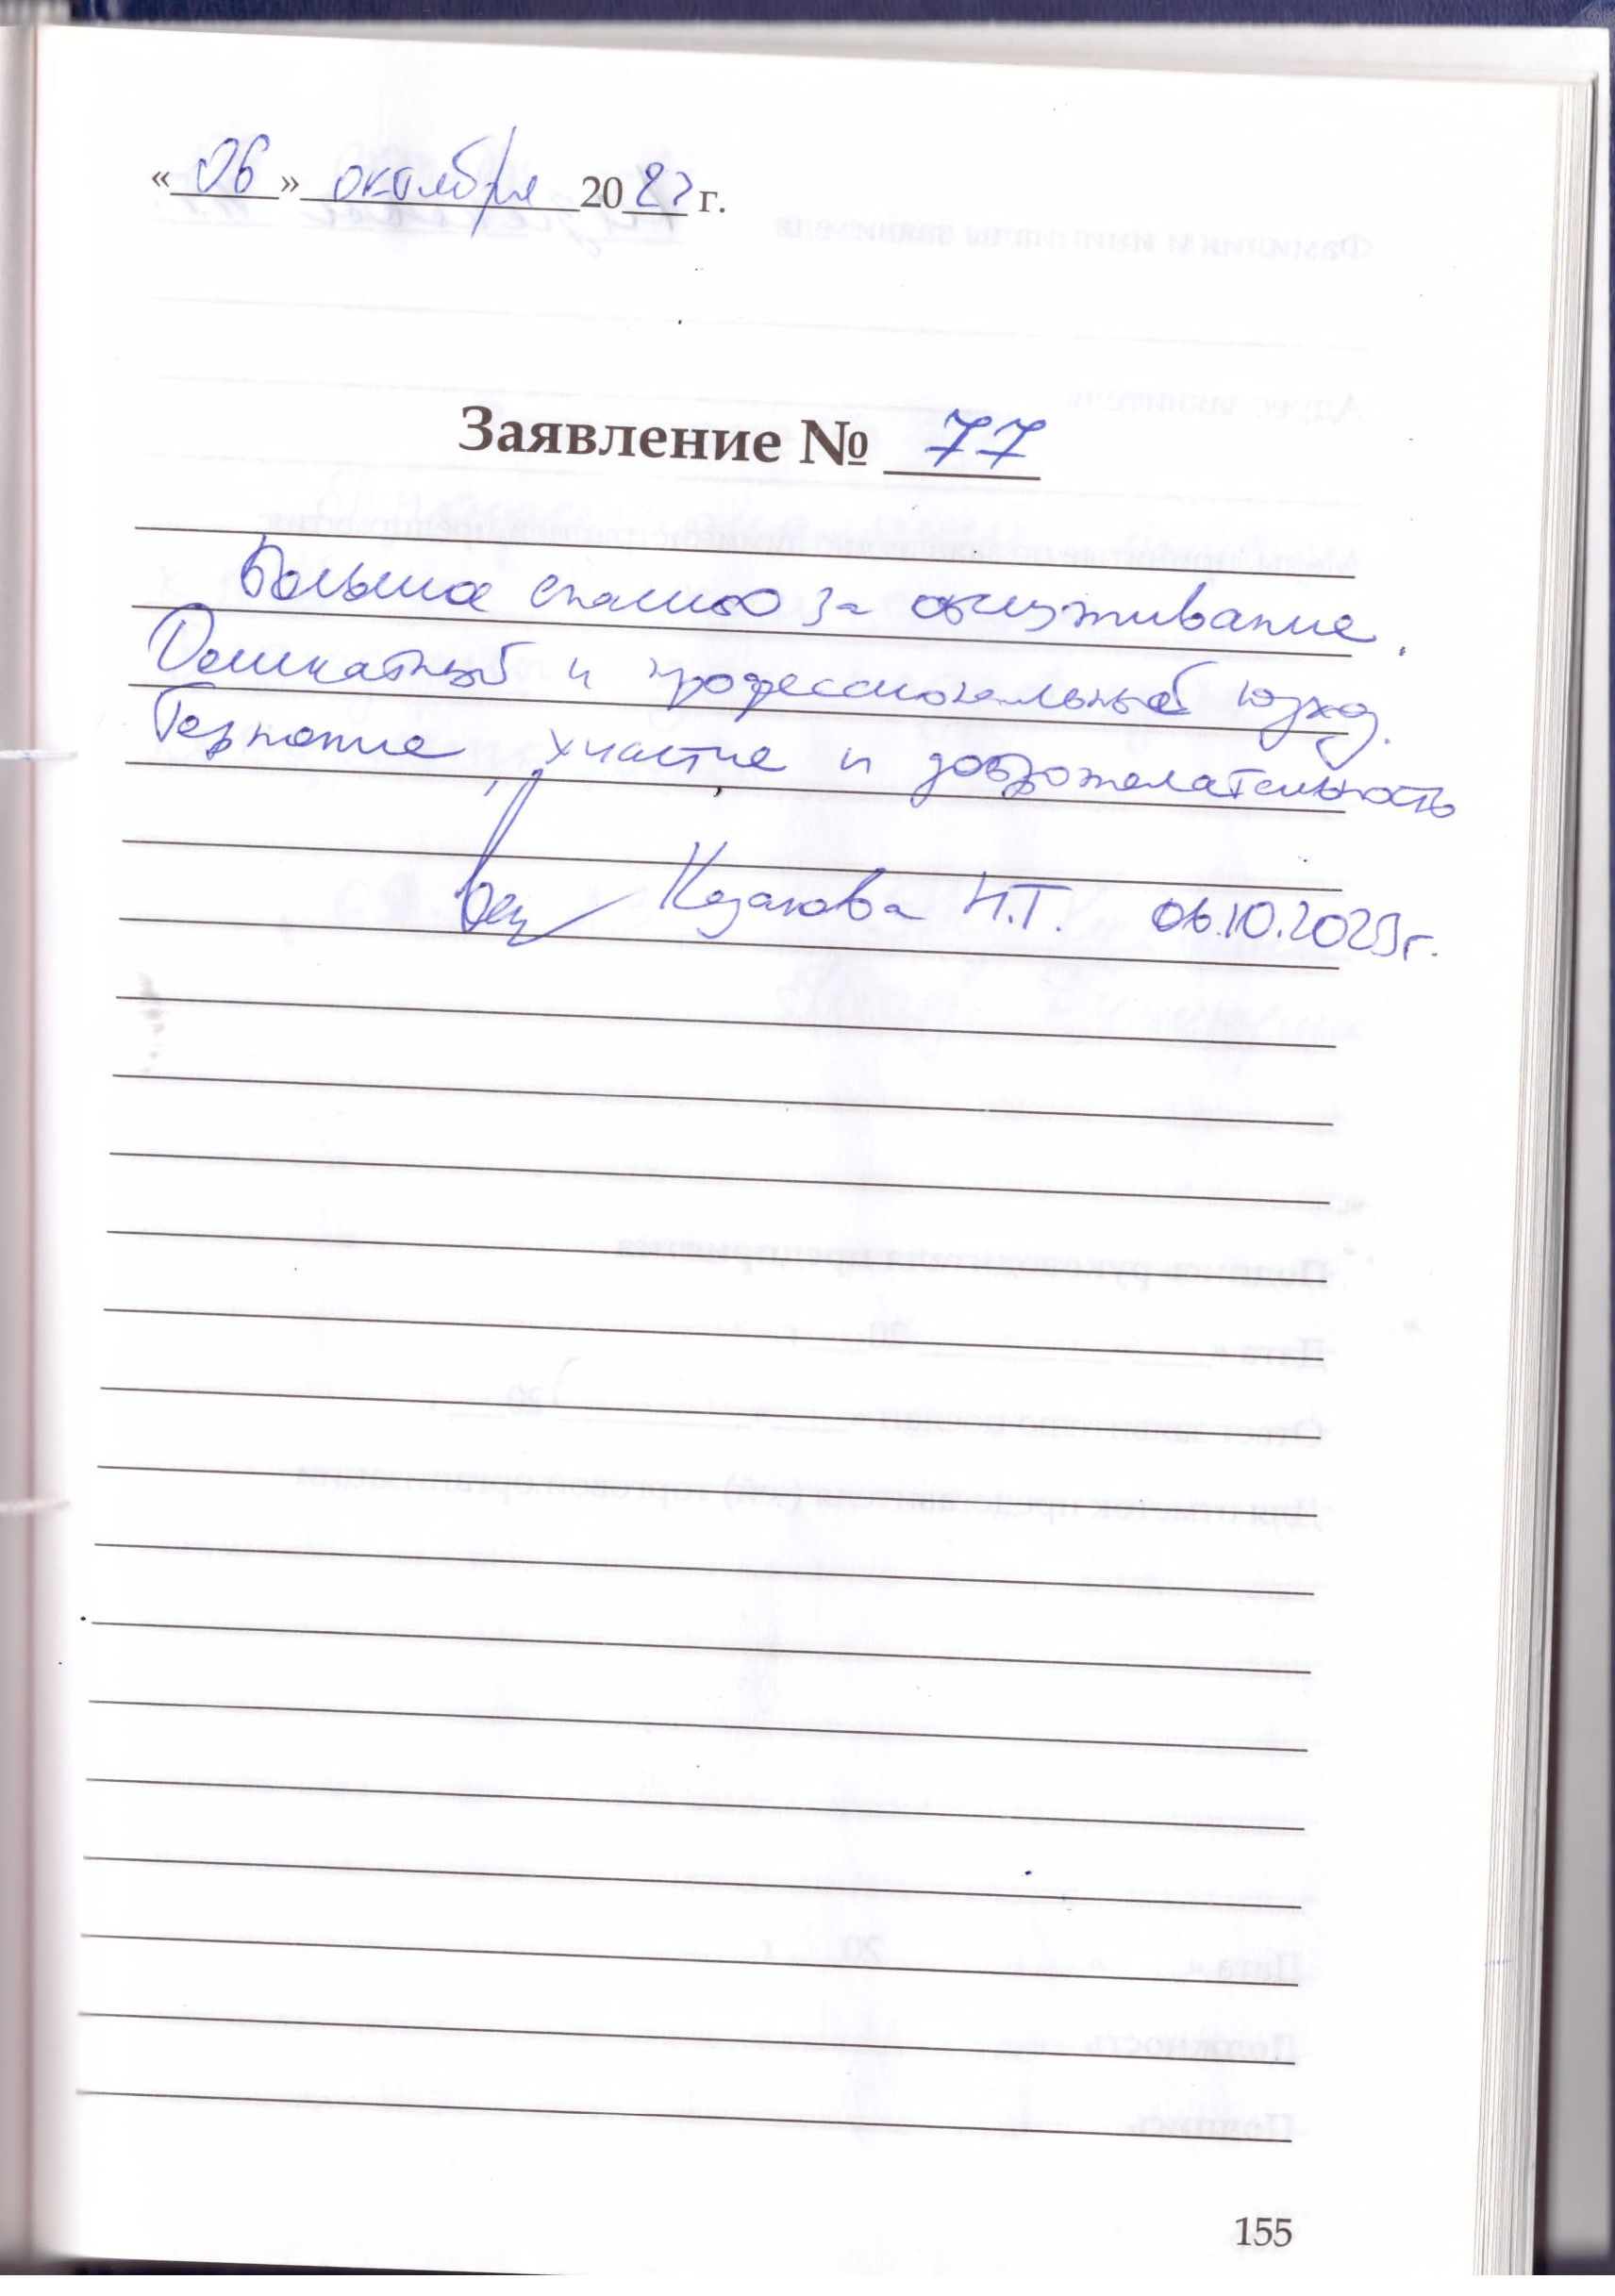 «06» октября 2023 г.
Заявление № 77
Большое спасибо за обслуживание.
Деликатный и профессиональный уход.
Терпение, участие и доброжелательность
Казакова Н.Т. 06.10.2023г.
155